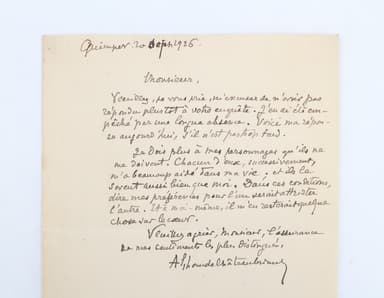 Quimper 20 Sept 1926
Monsieur,
Veuillez, je vous prie, m'excuser de n'avoir pas
répondu plus tôt à votre enquête. J'en ai été em-
pêché par une longue absence. Voici ma répon-
se aujourd'hui, s'il n'est pas trop tard.
Je dois plus à mes personnages qu'ils ne
me doivent. Chacun d'eux, successivement,
m'a beaucoup aidé dans ma vie. et ils le
savent aussi bien que moi. Dans ces conditions,
dire mes préférences pour l'un serait attrister
l'autre. Et à moi-même, il m'en resterait quelque
chose sur le cœur.
Veuillez agréer, Monsieur, l'assurance
de mes sentiments les plus distingués.
Alphonse de Châteaubriant